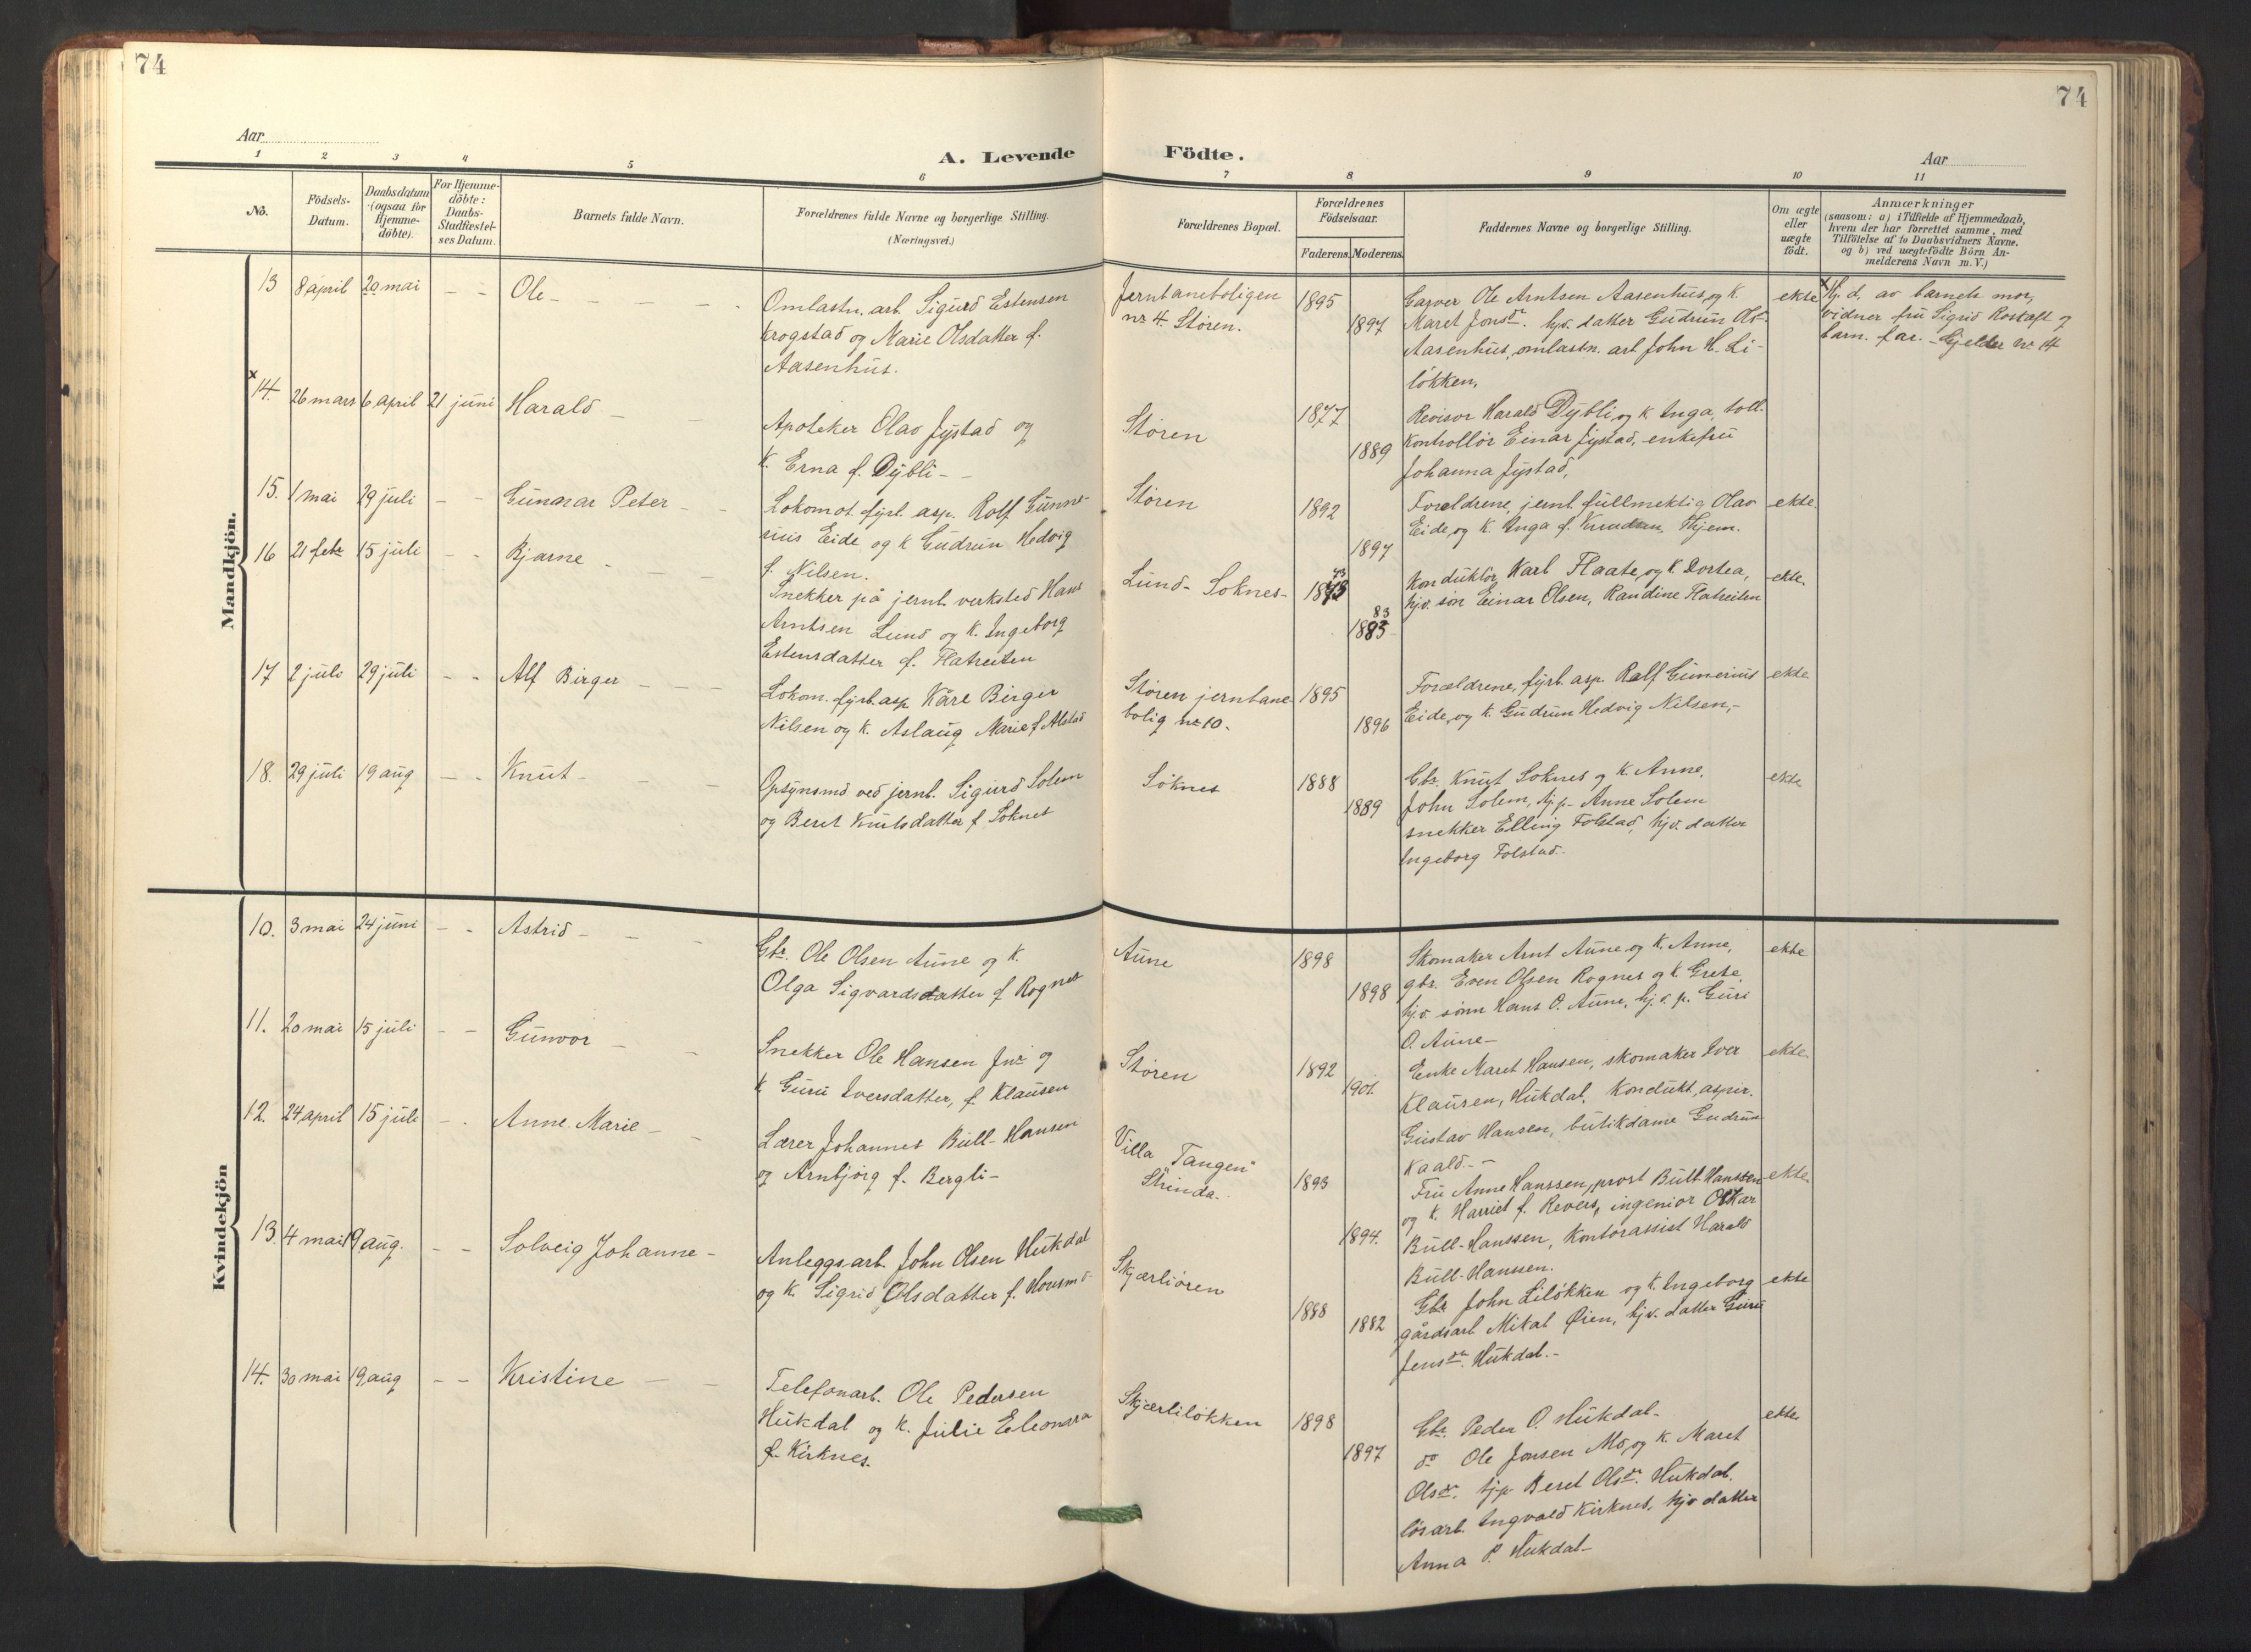 74
74
Aar
A. Levende Födte.
Aar
1 2 3 4 5 6 7 8 9 10 11
No.
Födsels-
Datum.
Daabsdatum
(ogsaa for
Hjemme-
döbte).
For Hjemme-
döbte:
Daabs-
Stadfæstel-
ses Datum.
Barnets fulde Navn.
Forældrenes fulde Navne og borgerlige Stilling.
(Næringsvei.)
Forældrenes Bopæl.
Forældrenes
Födselsaar.
Faderens. Moderens.
Faddernes Navne og borgerlige Stilling.
Om ægte
eller
uægte
födt.
Anmærkninger
(saasom: a) i Tilfælde af Hjemmedaab,
hvem der har forrettet samme, med
Tilföielse af to Daabsvidners Navne.
og b) ved uægtefödte Börn An-
melderens Navn m. V.)
Mandkjön.
13 8 april 20 mai - - Ole - - - -
Omlastn. arb. Sigurd Estensen
Krogstad og Marie Olsdatter f.
Aasenhus.
Jernbaneboligen
nr 4. Støren.
1895
1897
Garver Ole Arntsen Aasenhus, og k.
Maret Jonsdr. hjv. datter Gudrun Olsdr
Aasenhus, omlastn. arb John H. Li-
løkken.
ekte
x Hj. d. av barnets mor,
vidner fru Sigrid Rostaft og
barn. far. - Gjelder nr 14
x
14. 26 mars 6 april 21 juni Harald - -
Apoteker Olav Jystad og
k. Erna f. Dybli - -
Støren
1877
1889
Revisor Harald Dybli og k. Inga, toll-
kontrollør Einar Jystad, enkefru
Johanna Jystad,
15. 1 mai 29 juli - - Gunnar Peter - -
Lokomot. fyrb. asp. Rolf Gunne-
rius Eide og k Gudrun Hedvig
f. Nilsen.
Støren
1892
1897
Forældrene, jernb. fullmektig Olav
Eide, og k. Inga f. Knudsen, Thjem.
ekte.
16 21 febr 15 juli - - Bjarne - - -
Snekker på jernb. verksted Hans
Arntsen Lund og k. Ingeborg
Estensdatter f. Flatreiten
Lund - Soknes -
73
1873
83
1883
Konduktør Karl Flaate, og k. Dortea,
hjv. søn Einar Olsen, Randine Flatreiten
ekte.
17 2 juli 29 juli - - Alf Birger - - -
Lokom. fyrb. asp. Kåre Birger
Nilsen og k. Aslaug Marie f Alstad
Støren jernbane-
bolig nr 10.
1895
1896
Forældrene, fyrb. asp. Rolf Gunnerius
Eide, og k. Gudrun Hedvig Nilsen, -
ekte
18. 29 juli 19 aug - - Knut - - -
Opsynsmd ved jernb. Sigurd Solem
og Beret Knutsdatter f Soknes
Soknes
1888
1889
Gbr. Knut Soknes og k. Anne,
John Solem, hj.p. Anne Solem
snekker Elling Folstad, hjv. datter
Ingeborg Folstad.
ekte
Kvindekjön
10. 3 mai 24 juni - - Astrid - - -
Gbr. Ole Olsen Aune og k.
Olga Sigvardsdatter f Rognes
Aune
1898
1898
Skomaker Arnt Aune og k. Anne,
gbr. Even Olsen Rognes og k. Grete
hjv. sønn Hans O. Aune, hj.v.p. Guri
O. Aune -
ekte
11. 20 mai 15 juli - - Gunvor - -
Snekker Ole Hansen Jnr og
k. Guru Iversdatter, f Klausen
Støren
1892
1901.
Enke Maret Hansen, skomaker Iver
Klausen, Hukdal. Kondukt. aspir.
Gustav Hansen, butikdame Gudrun
Kaald. - -
ekte.
12. 24 april 15 juli - - Anne Marie - -
Lærer Johannes Bull-Hansen
og Arnbjørg f. Bergli -
Villa "Tangen"
Strinda.
1893
1894.
Fru Anne Hanssen, prost Bull-Hanssen
og k. Harriet f. Revers, ingeniør Oskar
Bull-Hanssen, Kontorassist Harald
Bull-Hanssen.
ekte.
13. 4 mai 19 aug. - - Solveig Johanne -
Anleggsarb. John Olsen Hukdal
og k. Sigrid Olsdatter f. Housmo
Skjærliøren
1888
1882
Gbr John Liløkken og k. Ingeborg
gårdsarb Mikal Øien, hjv. datter Guru
Jensdr. Hukdal. -
ekte
14. 30 mai 19 aug - - Kristine - -
Telefonarb. Ole Pedersen
Hukdal og k. Julie Eleonora
f. Kirknes.
Skjærliløkken
1898
1897
Gbr. Peder O. Hukdal -
do Ole Jonsen Mo, og k. Maret
Olsdr. hjp Beret Olsdr. Hukdal.
løsarb. Ingvald Kirknes, hjv datter
Anna P. Hukdal -
ekte